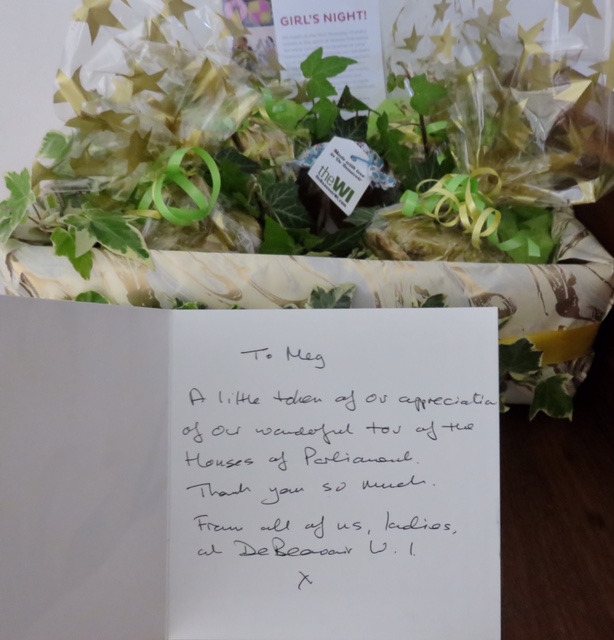 GIRL'S NIGHT!
the WI
To Meg
A little token of our appreciation
of our wonderful tour of the
Houses of Parliament.
Thank you so much.
From all of us, ladies,
at De Beauvoir W.I.
X